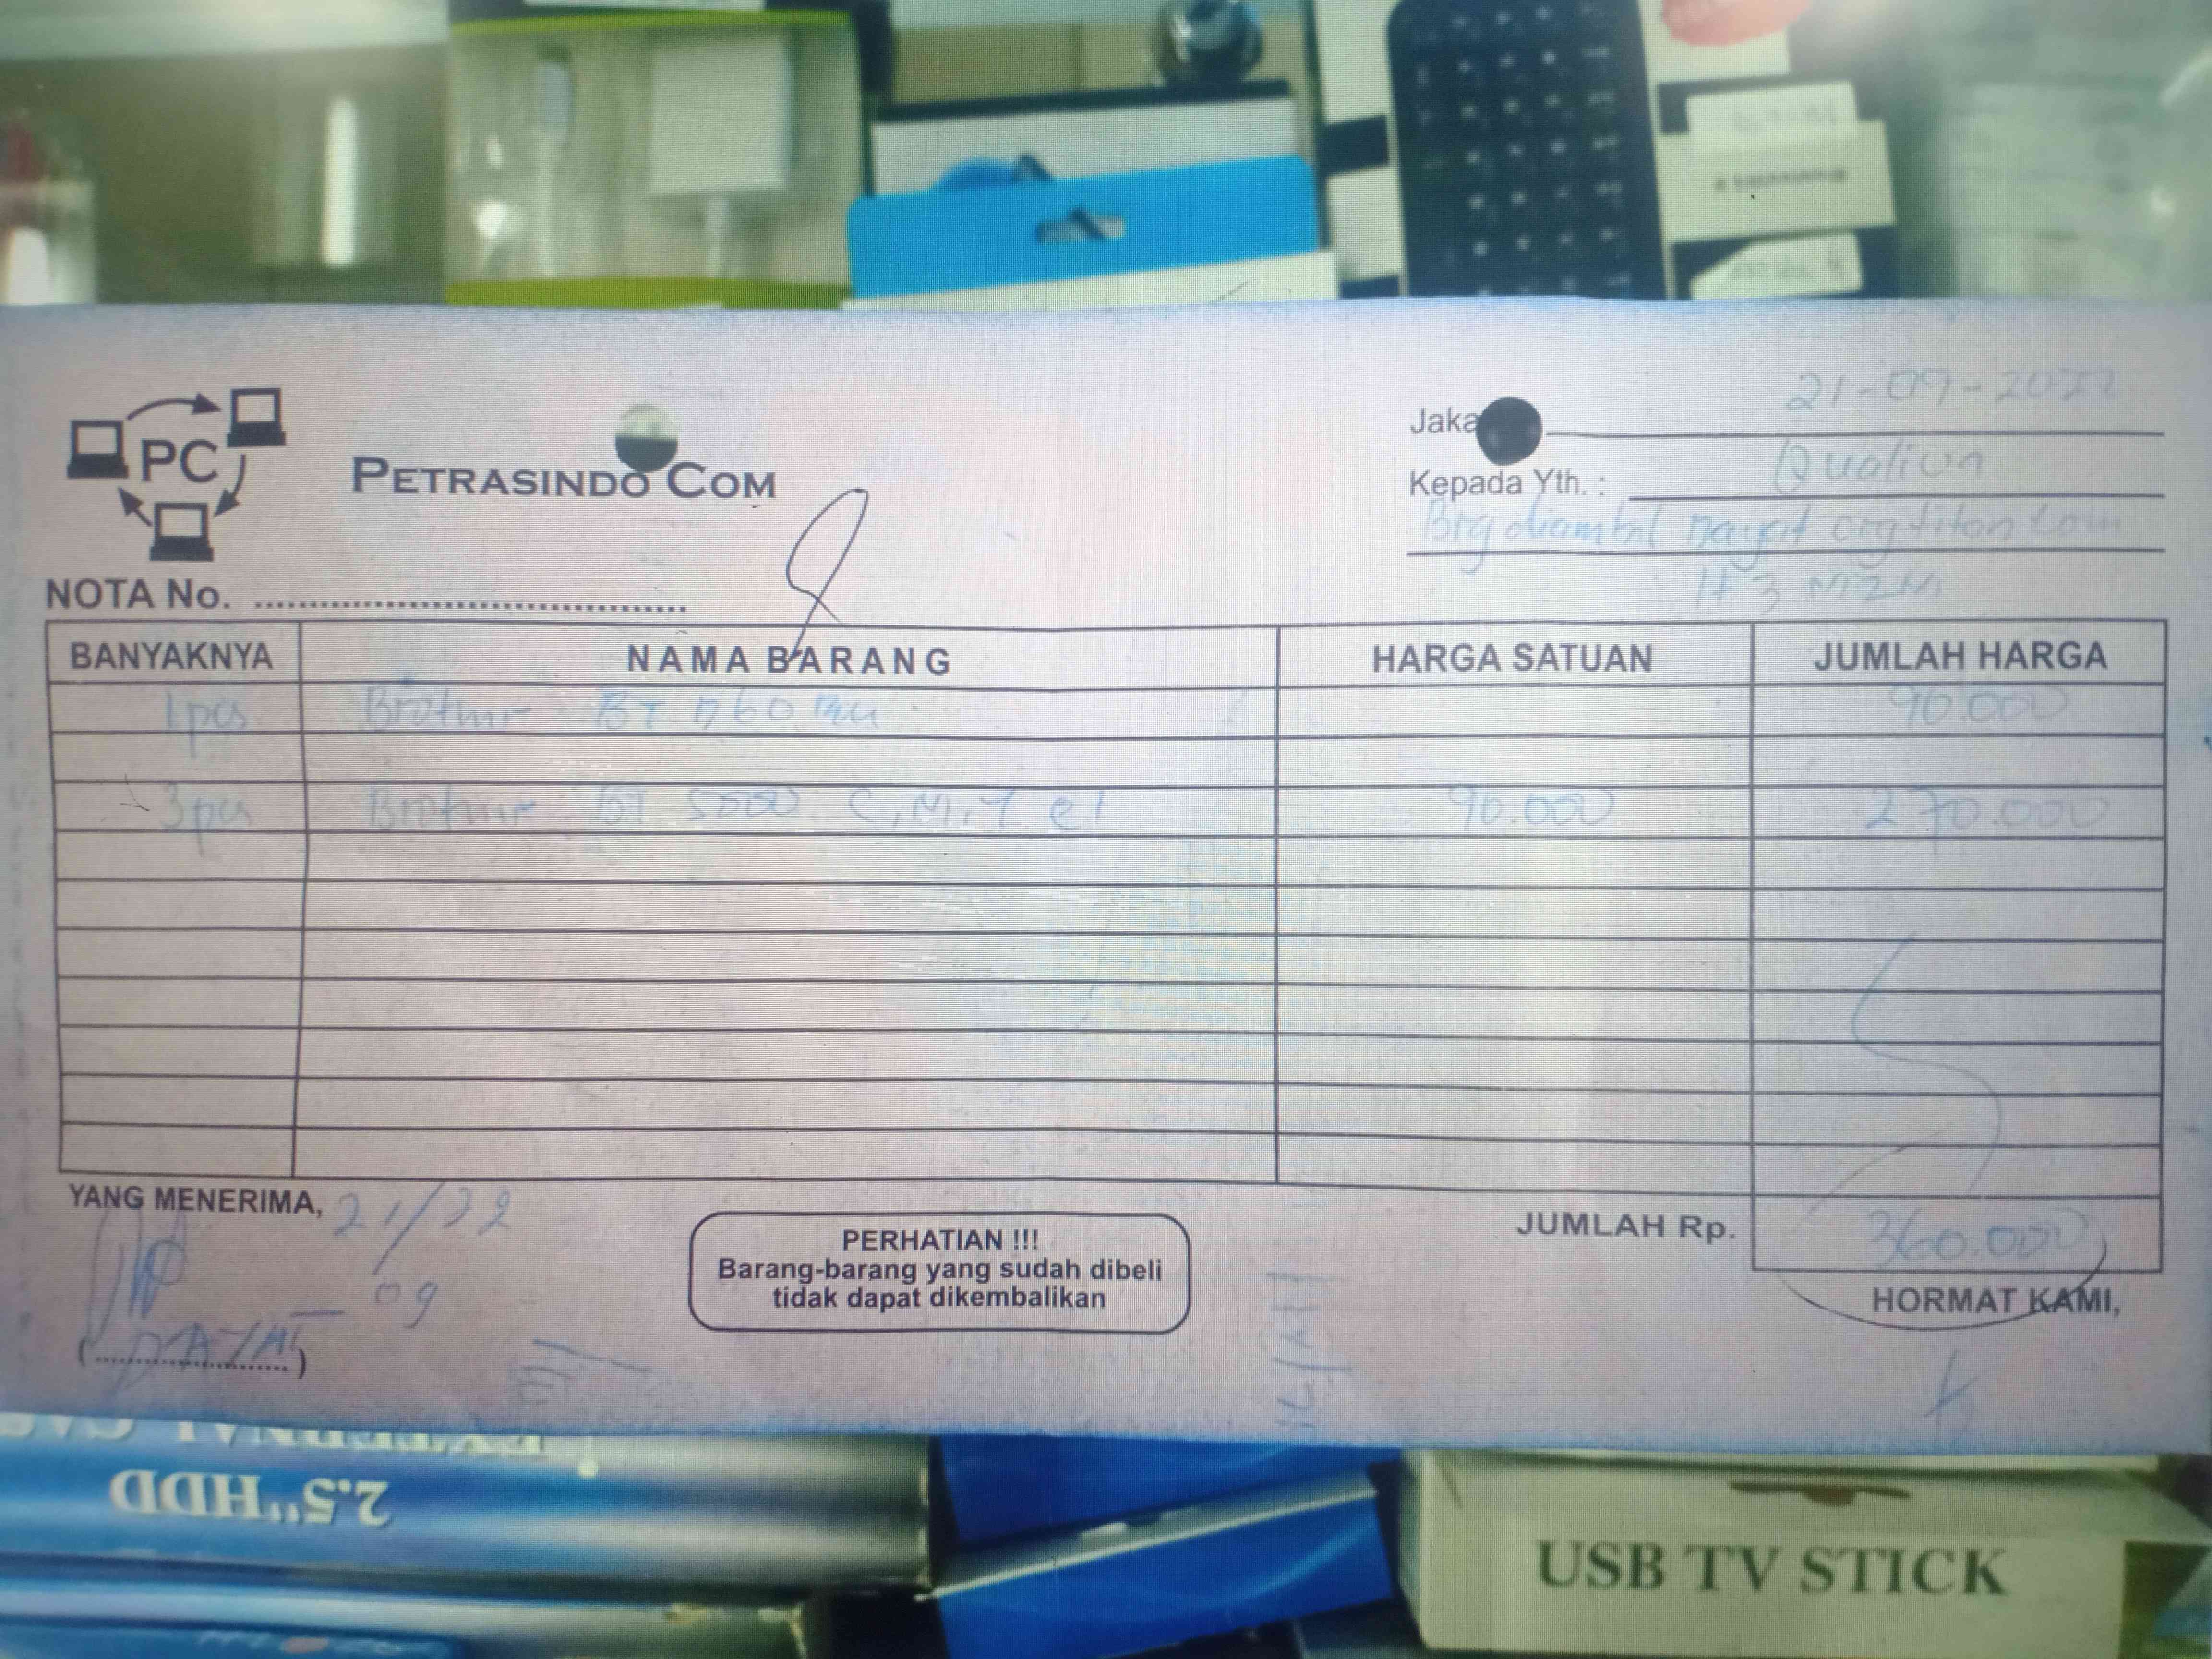 PC
PETRASINDO COM
21-09-2022
Jaka
Kepada Yth. : Qualion
Brg diambil titon com
lt 3
NOTA No.
BANYAKNYA NAMA BARANG HARGA SATUAN JUMLAH HARGA
1 pcs Brother BT D60 90.000
3 pcs Brother BT 5000 C, M, Y @1 90.000 270.000
YANG MENERIMA, 21/
09
PERHATIAN !!!
Barang-barang yang sudah dibeli
tidak dapat dikembalikan
JUMLAH Rp. 360.000
HORMAT KAMI,
EXTERNAL
2.5" HDD
USB TV STICK